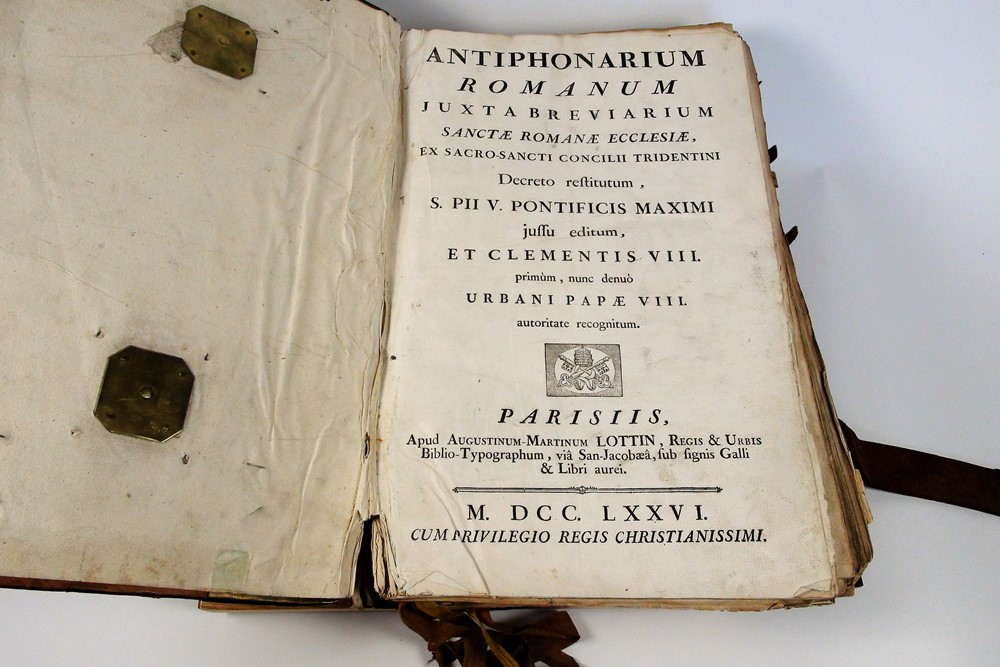 ANTIPHONARIUM
ROMANUM
JUXTA BREVIARIUM
SANCTÆ ROMANÆ ECCLESIÆ,
EX SACRO-SANCTI CONCILII TRIDENTINI
Decreto reſtitutum,
S. PII V. PONTIFICIS MAXIMI
juſſu editum,
ET CLEMENTIS VIII.
primùm, nunc denuò
URBANI PAPÆ VIII.
autoritate recognitum.
PARISIIS,
Apud AUGUSTINUM-MARTINUM LOTTIN, REGIS & URBIS
Biblio-Typographum, viâ San-Jacobæâ, ſub ſignis Galli
& Libri aurei.
M. DCC. LXXVI.
CUM PRIVILEGIO REGIS CHRISTIANISSIMI.